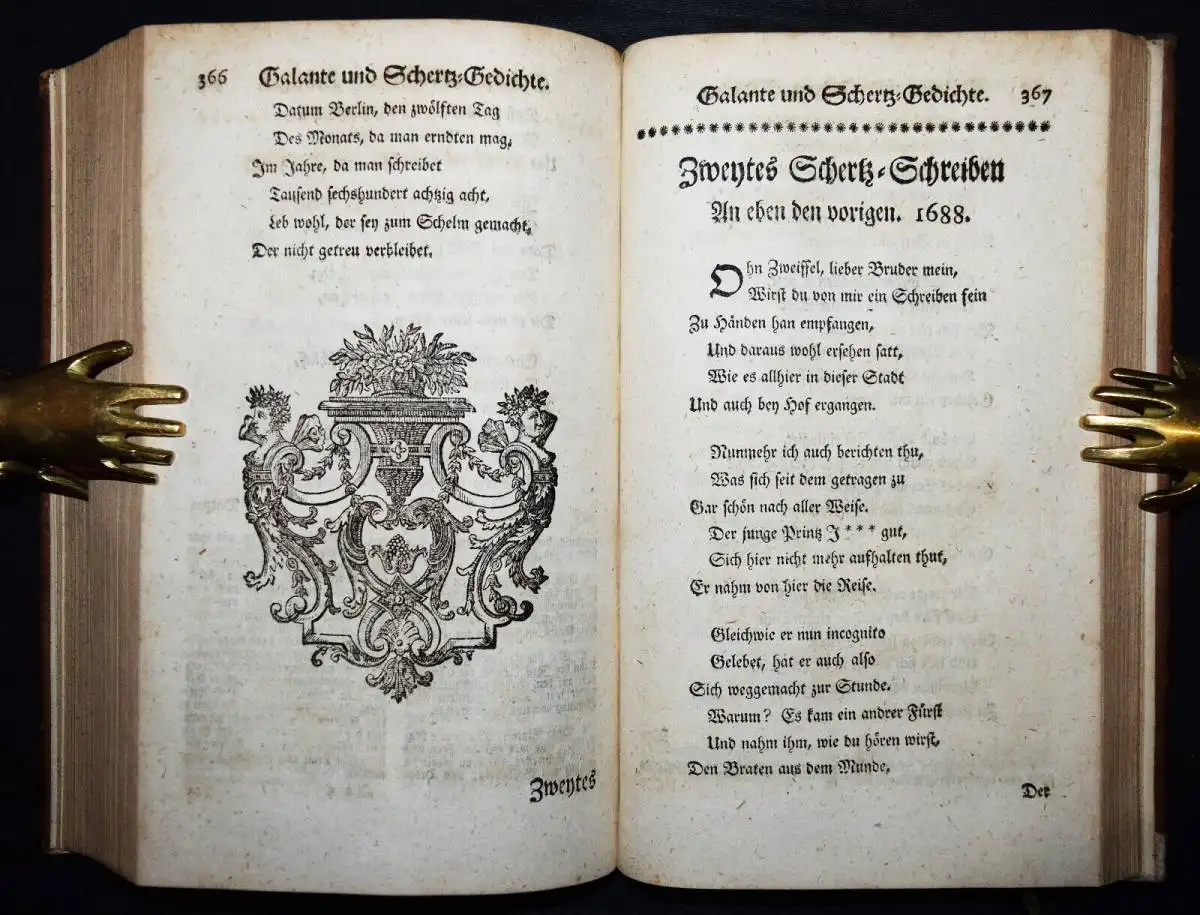 366 Galante und Schertz-Gedichte.
Datum Berlin, den zwölften Tag
Des Monats, da man erndten mag,
Im Jahre, da man schreibet
Tausend sechshundert achtzig acht,
Leb wohl, der sey zum Schelm gemacht,
Der nicht getreu verbleibet.
Zweytes
Galante und Schertz-Gedichte. 367
Zweytes Schertz-Schreiben
An eben den vorigen. 1688.
Ohn Zweiffel, lieber Bruder mein,
Wirst du von mir ein Schreiben fein
Zu Händen han empfangen,
Und daraus wohl ersehen satt,
Wie es allhier in dieser Stadt
Und auch bey Hof ergangen.
Nunmehr ich auch berichten thu,
Was sich seit dem getragen zu
Gar schön nach aller Weise.
Der junge Printz J*** gut,
Sich hier nicht mehr aufhalten thut,
Er nahm von hier die Reise.
Gleichwie er nun incognito
Gelebet, hat er auch also
Sich weggemacht zur Stunde.
Warum? Es kam ein andrer Fürst
Und nahm ihm, wie du hören wirst,
Den Braten aus dem Munde,
Der